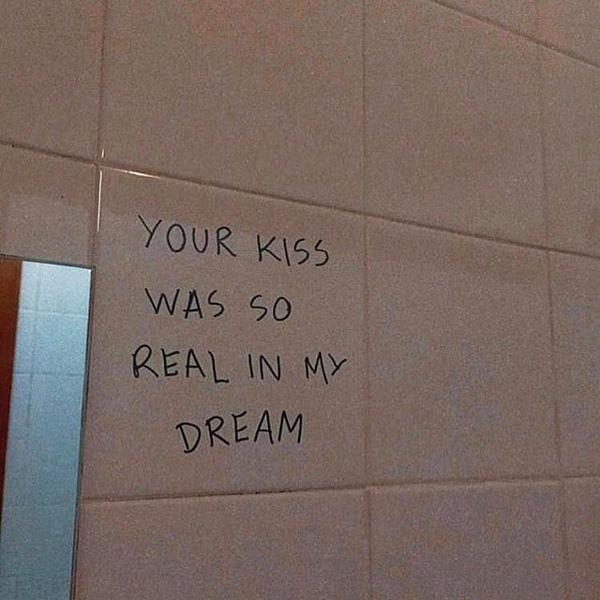 YOUR KISS
WAS SO
REAL IN MY
DREAM